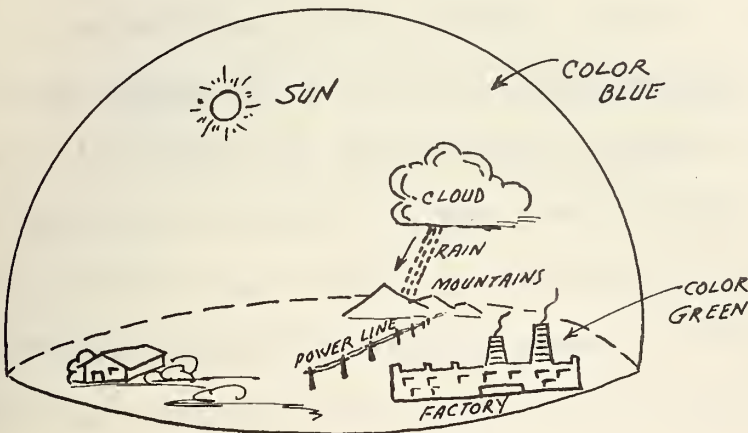 SUN
COLOR
BLUE
CLOUD
RAIN
MOUNTAINS
COLOR
GREEN
POWER LINE
FACTORY